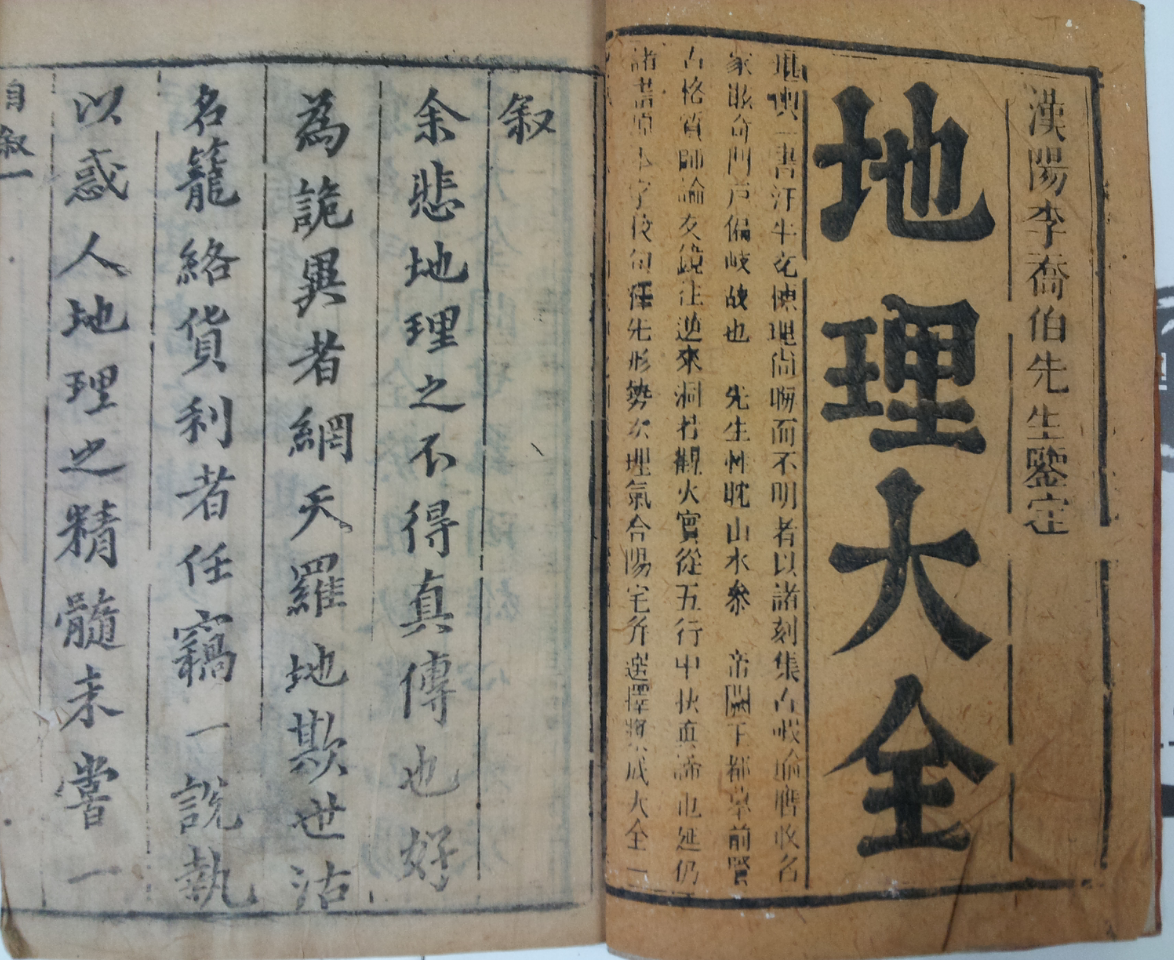 漢陽李喬伯先生鑒定
地理大全
堪輿一書汗牛充棟理尚晦而不明者以諸刻集古
家眩奇門戶偏岐故也 先生性耽山水參 帝闕王都皋前賢
古格質師論友鏡往逆來洞若觀火實從五行中抉真諦也延仍
諸書原本字校句釋先形勢次理氣合陽宅
成大全一
敘
余悲地理之不得真傳也好
為詭異者網天羅地欺世沽
名籠絡貨利者任竊一說執
以惑人地理之精髓未嘗一
自敘一